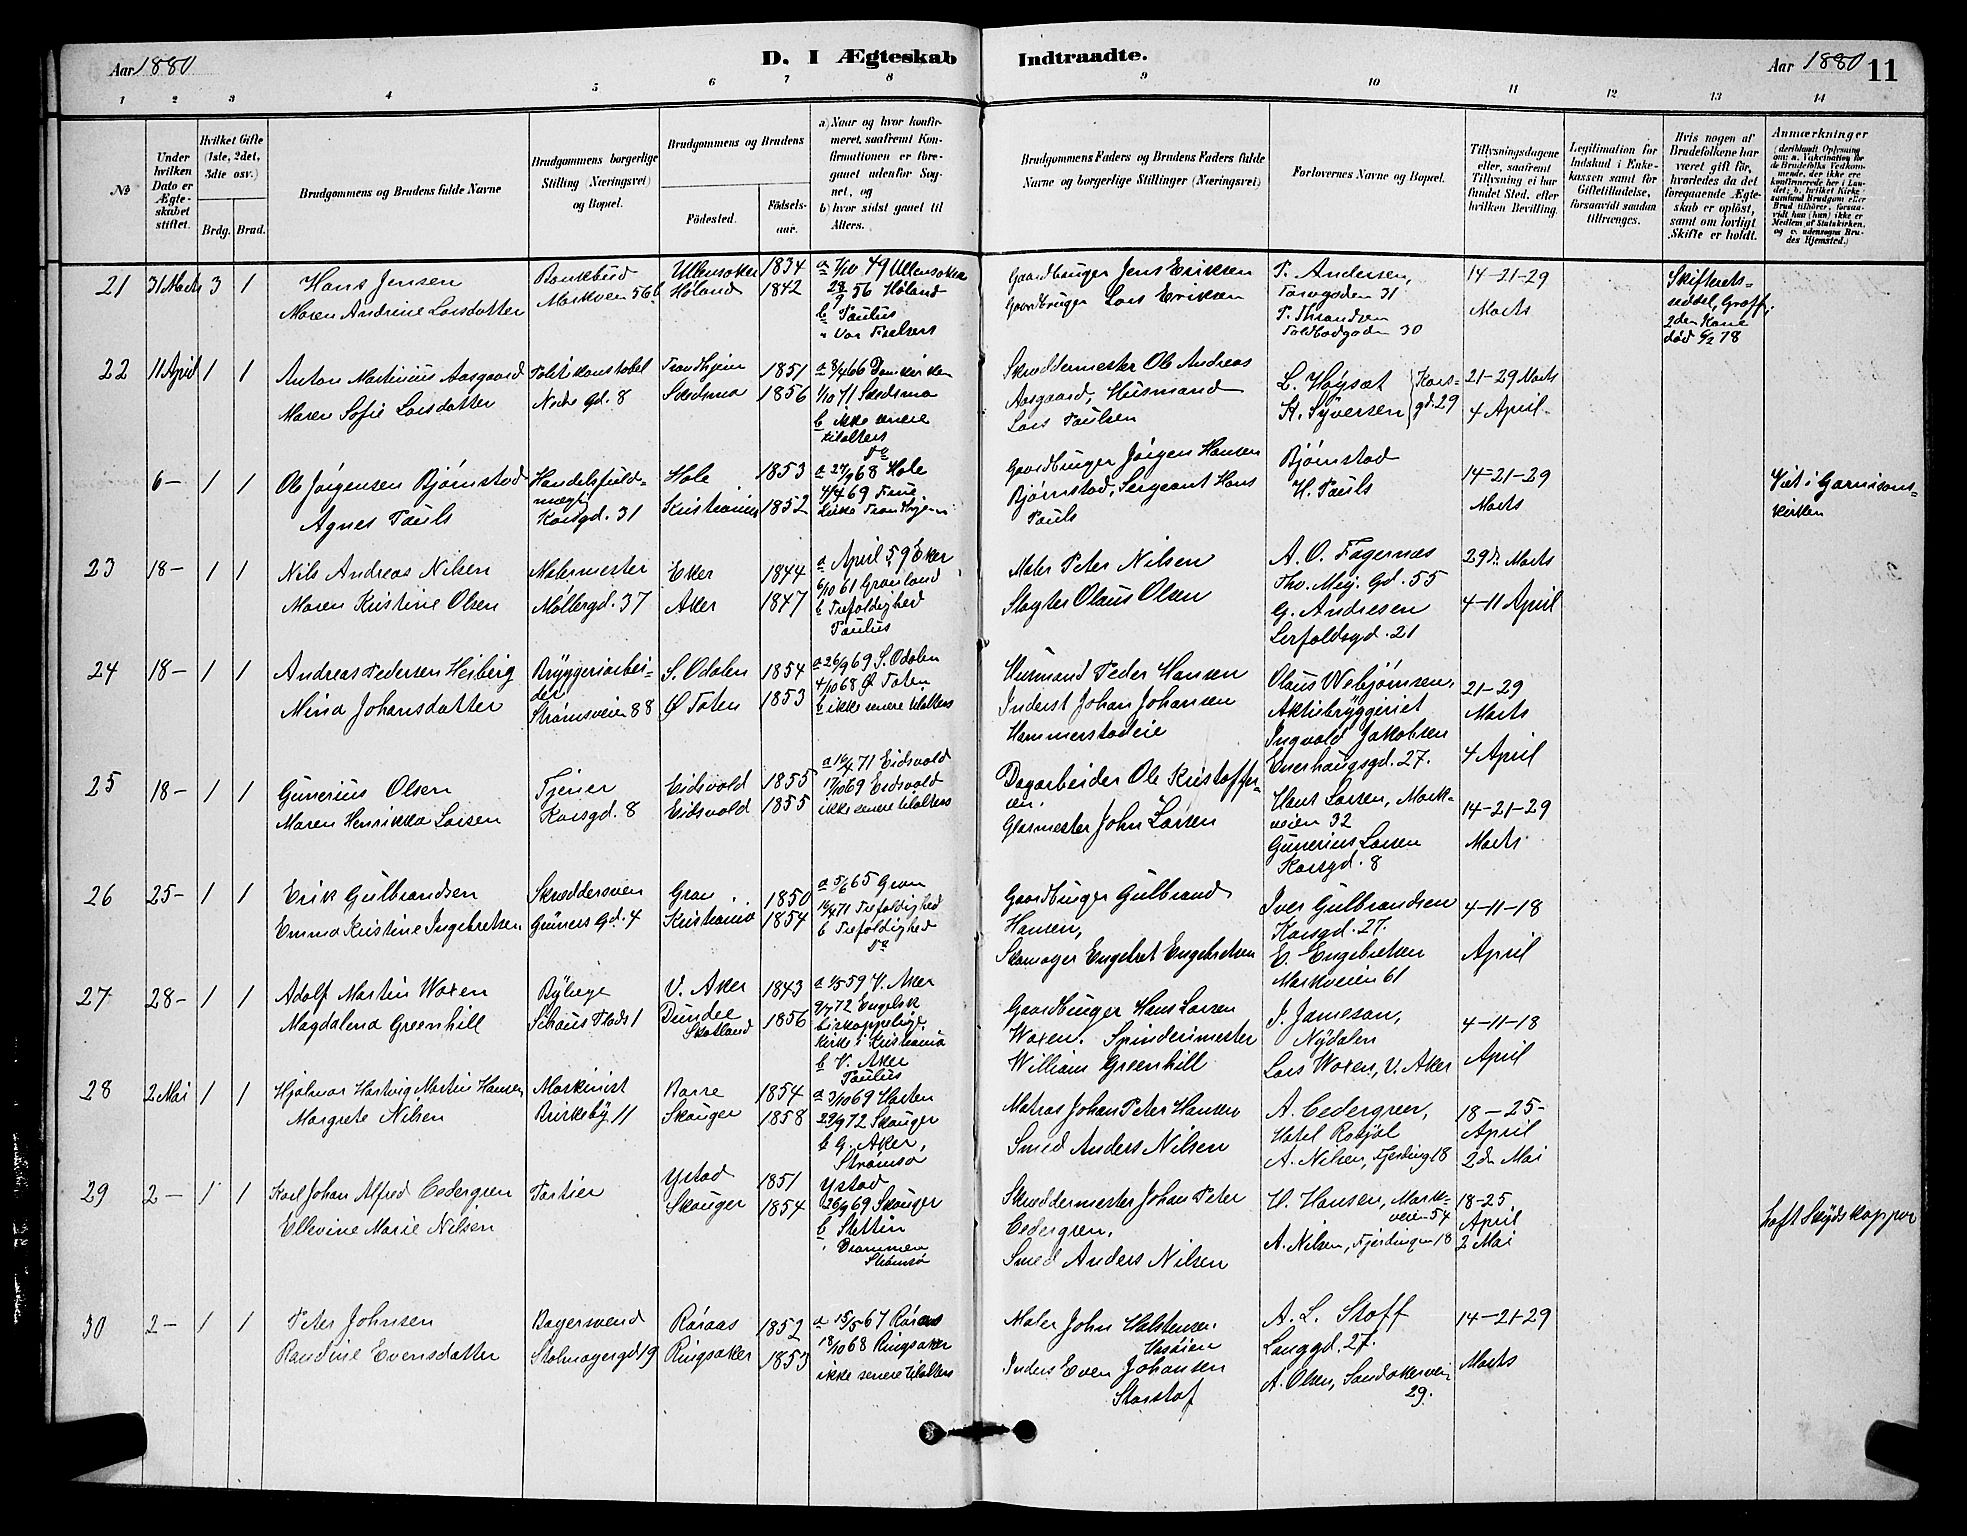 Aar 1880
D. I Ægteskab Indtraadte.
Aar 1880 11
1 2 3 4 5 6 7 8 9 10 11 12 13 14
No
Under hvilken Dato er Ægteskabet stiftet.
Hvilket Gifte (1ste, 2det, 3die osv.)
Brdg. Brud.
Brudgommens og Brudens fulde Navne
Brudgommens borgerlige Stilling (Næringsvei) og Bopæl.
Brudgommens og Brudens
Fødested. Fødselsaar.
a) Naar og hvor konfirmeret, saafremt Konfirmationen er foregaaet udenfor Sognet, og
b) hvor sidst gaaet til Alters.
Brudgommens Faders og Brudens Faders fulde Navne og borgerlige Stillinger (Næringsvei)
Forlovernes Navne og Bopæl.
Tillysningsdagene eller, saafremt Tillysning ei har fundet Sted, efter hvilken Bevilling.
Legitimation for Indskud i Enkekassen samt for Giftetilladelse, forsaavidt saadan tiltrænges.
Hvis nogen af Brudefolkene har været gift før, hvorledes da det foregaaende Ægteskab er opløst, samt om lovligt Skifte er holdt.
Anmærkninger (deriblandt Oplysning om: a. Vakcination for de Brudefolks Vedkommende, der ikke ere konfirmerede her i Landet; b. hvilket Kirkesamfund Brudgom eller Brud tilhører, forsaavidt han (hun) ikke er Medlem af Statskirken, og c. udensogns Brudes Hjemsted.)
21 31 Marts 3 1 Hans Jensen Ullensaker 1834 a 7/10 49 Ullensaker Gaardbruger Jens Eriksen P. Andersen, 14-21-29
Maren Andrine Larsdatter Markveien 56b Høland 1842 28/9 56 Høland Gaardbruger Lars Eriksen Torvgaden 31 Marts
b Paulus P. Thrandsen
" Vor Frelsers Toldbodgaden 30
Skifterets-
seddel, Graff.
2den Kone
død 6/2 78
22 11 April 1 1 Anton Martinius Aasgaard Politikonstabel Trondhjem 1851 a 8/4 66 Domkirken Skræddermester Ole Andreas L. Høysæt Kors- 21-29 Marts
Maren Sofie Larsdatter Nedre gd. 8 Skedsmo 1856 1/10 71 Skedsmo Aasgaard, Husmand K. Syversen gd. 29 4 April.
b ikke senere Lars Paulsen
tilalters
do
6- 1 1 Ole Jørgensen Bjørnstad Handelsfuld- Hole 1853 a 27/9 68 Hole Gaardbruger Jørgen Hansen Bjørnstad 14-21-29 Viet i Garnisons-
Agnes Pauls mægt. Korsgd. 31 Kristiania 1852 4/4 69 Frue Bjørnstad, Sergeant Hans H. Pauls Marts kirken
kirke Trondhjem Pauls
23 18- 1 1 Nils Andreas Nilsen Malermester Eker 1844 a April 59 Eker Maler Peter Nilsen A. O. Fagernæs 29de Marts
Maren Kristine Olsen Møllergd. 37 Aker 1847 6/10 61 Grønland Slagter Olaus Olsen Thv. Mey. Gd. 55 4-11 April
b Trefoldighed G. Andresen
Paulus Lerfaldsgd. 21
24 18- 1 1 Andreas Pedersen Heiberg Bryggeriarbei- S. Odalen 1854 a 26/9 69 S. Odalen Husmand Peder Hansen Olaus Webjørnsen, 21-29
Mina Johansdatter der Strømsveien 88 Ø Toten 1853 4/10 68 Ø Toten Inderst Johan Johansen Aktiebryggeriet Marts
b ikke senere tilalters Hammerstadeie Ingvald Jakobsen 4 April
Enerhaugsgd. 27.
25 18- 1 1 Gunerius Olsen Tjener Eidsvold 1855 a 16/4 71 Eidsvold Dagarbeider Ole Kristoffer- Hans Larsen, Mark- 14-21-29
Maren Henrikka Larsen Korsgd. 8 Eidsvold 1855 17/10 69 Eidsvold sen. veien 32 Marts
ikke senere tilalters Glasmester John Larsen Gunerius Larsen
Korsgd. 8
26 25- 1 1 Erik Gulbrandsen Skræddersven Gran 1850 a 5/6 65 Gran Gaardbruger Gulbrand Iver Gulbrandsen 4-11-18
Emma Kristine Ingebretsen Grüners Gd. 4 Kristiania 1854 16/4 71 Trefoldighed Hansen, Korsgd. 27. April
b Trefoldighed Skomager Engebret Engebretsen E. Engebretsen
do Markveien 61
27 28- 1 1 Adolf Martin Woxen Bylæge V. Aker 1843 a 1/5 59 V. Aker Gaardbruger Hans Larsen J. Jameson, 4-11-18
Magdalena Greenhill Schous Plads 1 Dundee Skotland 1856 9/7 72 Engelsk Woxen. Spinderimester Nydalen April
biskoppelige William Greenhill Lars Woxen, V. Aker
kirke i Kristiania
b V. Aker
Paulus
28 2 Mai 1 1 Hjalmar Hartvig Martin Hansen Maskinist Borre 1854 a 3/10 69 Horten Matros Johan Peter Hansen A. Cedergren, 18-25-
Margrete Nilsen Birkeby 11 Skauger 1858 29/9 72 Skauger Smed Anders Nilsen Hotel Royal April
b G. Aker, A. Nilsen, Fjerding 18 2den Mai
Strømsø
29 2- 1 1 Karl Johan Alfred Cedergren Portier Ystad 1851 Ystad Skræddermester Johan Peter H. Hansen, Mark- 18-25.
Ellevine Marie Nilsen Skauger 1854 26/9 69 Skauger Cedergren, veien 54 April
b Stettin Smed Anders Nilsen A. Nilsen, Fjerdingen 18 2 Mai
" Drammen
Strømsø
haft Skydskopper
30 2- 1 1 Peter Johnsen Bagersvend Røraas 1852 a 15/5 67 Røraas Maler John Halstensen A. L. Stoff 14-21-29
Randine Evensdatter Stolmagergd 19 Ringsaker 1853 18/10 68 Ringsaker Langgd. 27. Marts
ikke senere tilalters Inderst Even Johansen A. Olsen, Sandakervei
Storstof 29.